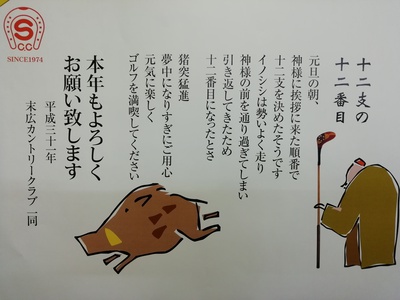 十二支の
十二番目
元旦の朝、
神様に挨拶に来た順番で
十二支を決めたそうです
イノシシは勢いよく走り
神様の前を通り過ぎてしまい
引き返してきたため
十二番目になったとさ
猪突猛進
夢中になりすぎにご用心
元気に楽しく
ゴルフを満喫してください
本年もよろしく
お願い致します
平成三十一年
末広カントリークラブ 一同
S
CC
SINCE1974